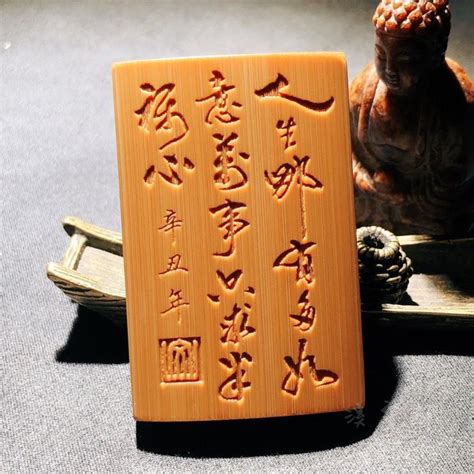 人生哪有多如
意萬事只求半
稱心
辛丑年